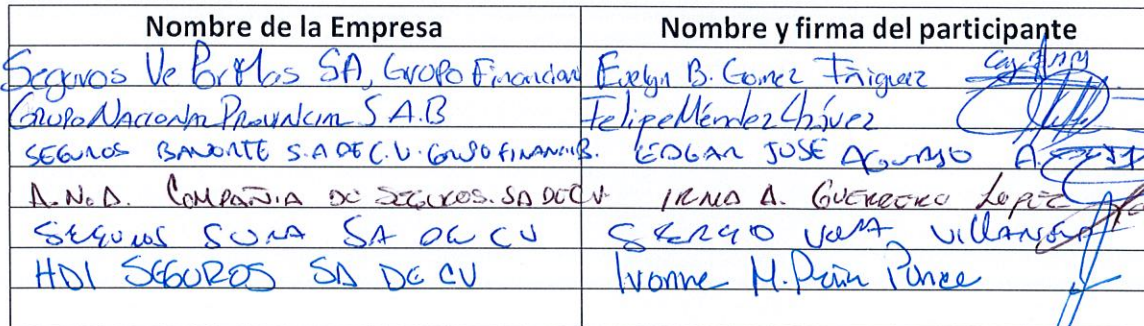 Nombre de la Empresa Nombre y firma del participante
Seguros Ve Por Mas SA, Grupo Financiero Evelyn B. Gomez Iñiguez
Grupo Nacional Provincial S.A.B Felipe Méndez Chávez
SEGUROS BANORTE S.A DE C.V. GRUPO FINANCIERO B. EDGAR JOSÉ A.
A.N.A. COMPAÑIA DE SEGUROS. SA DE CV. IRMA A. GUERRERO Lopez
SEGUROS SURA SA DE CV SERGIO VILLANUEVA
HDI SEGUROS SA DE CV Ivonne M. Ponce